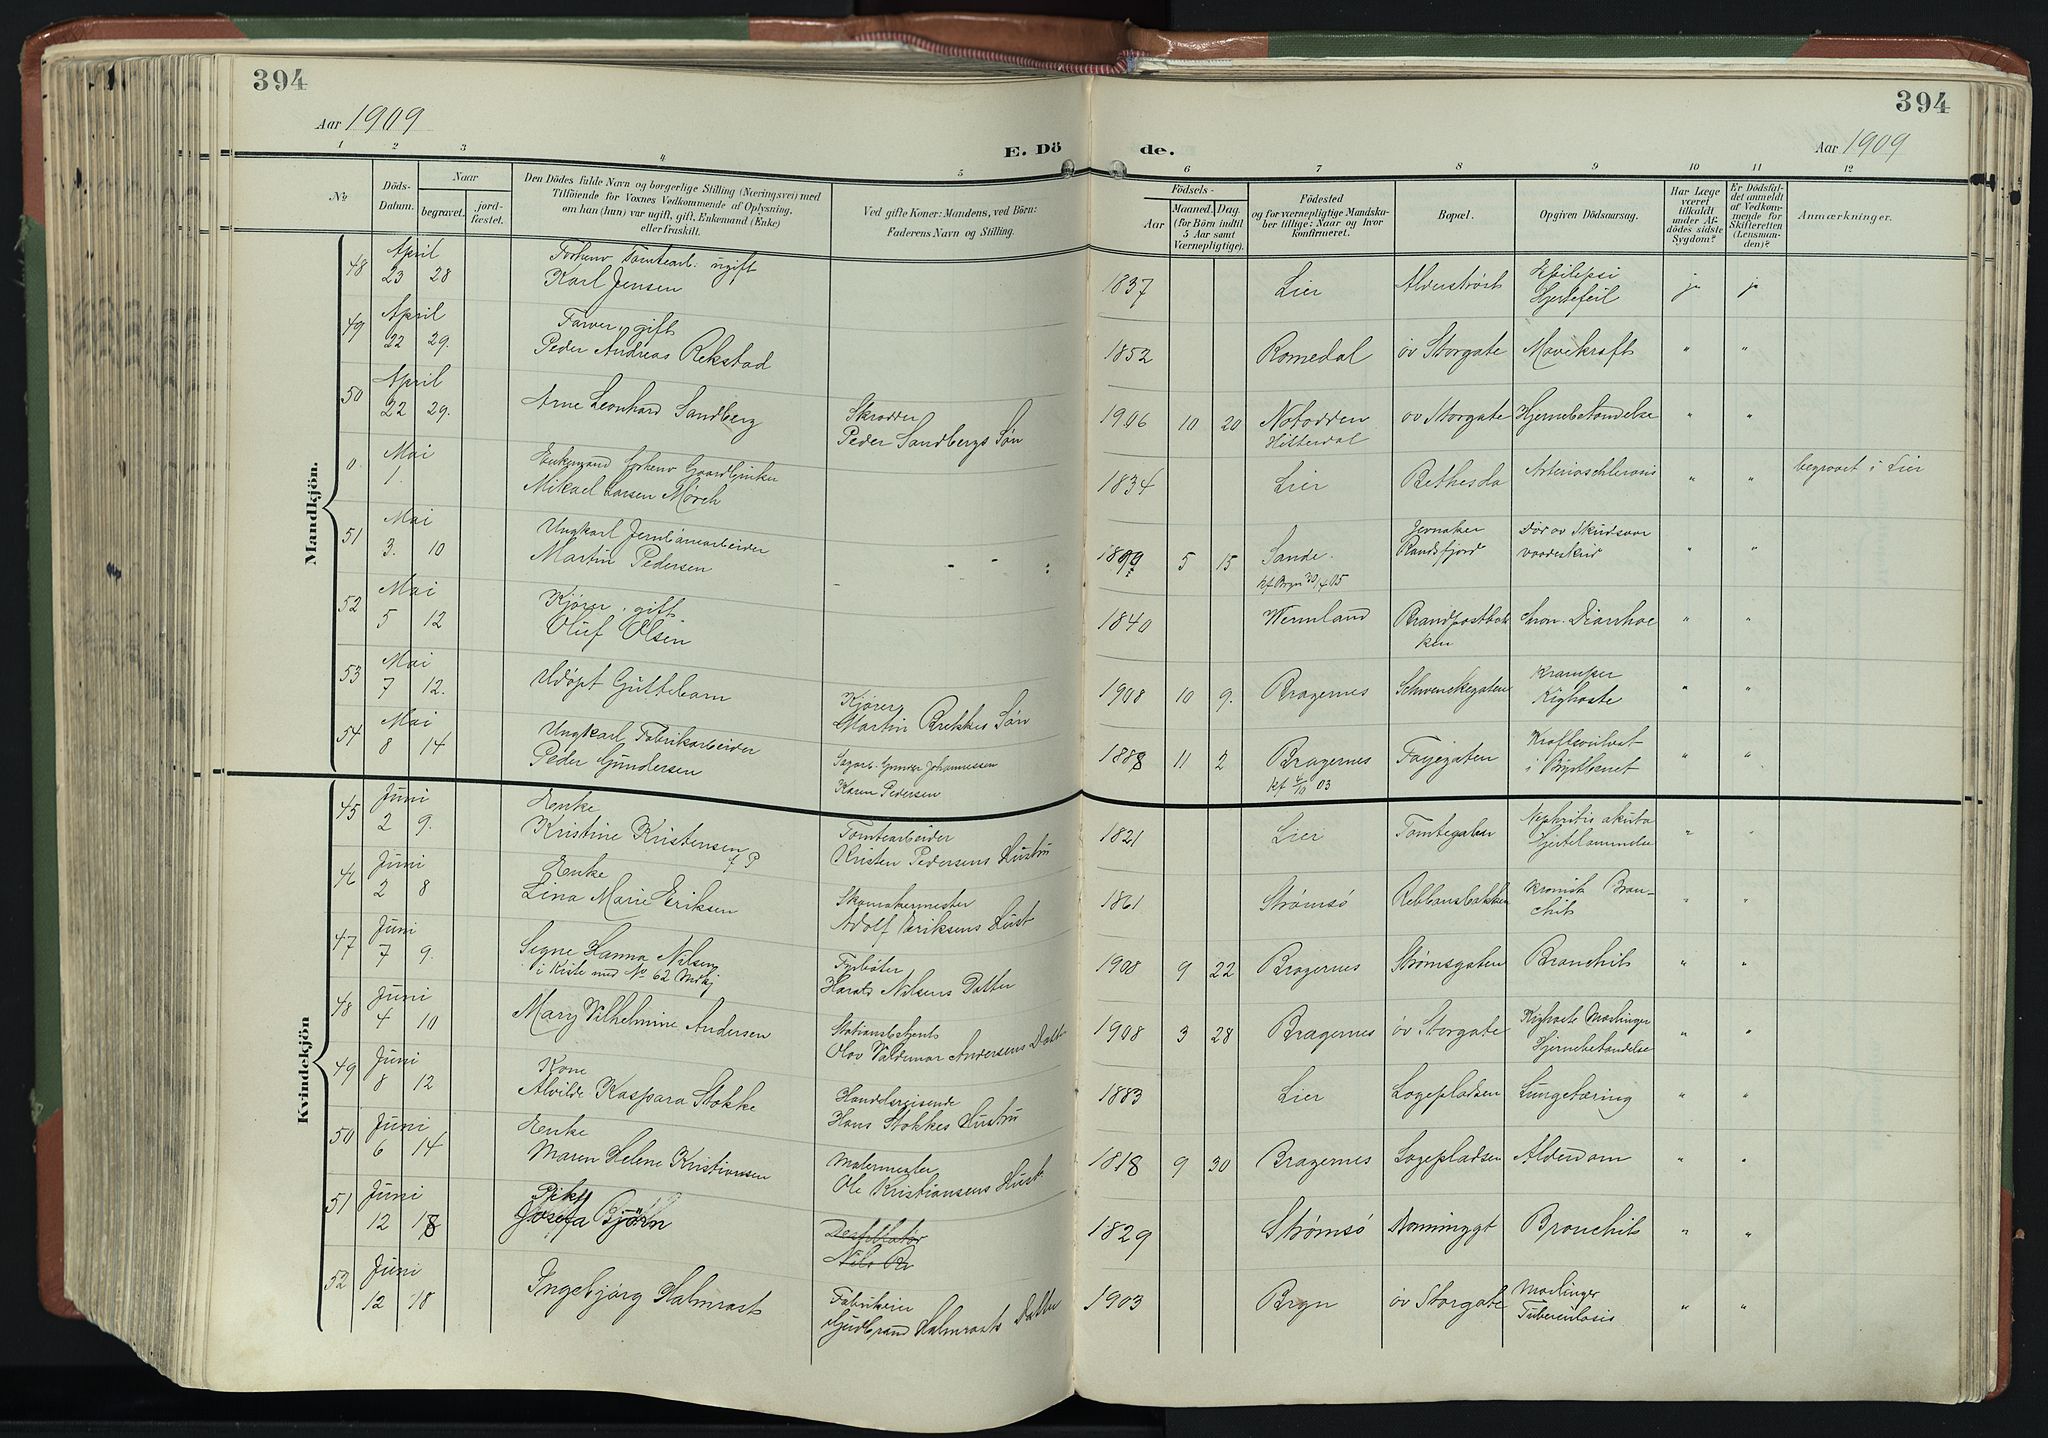 394
394
Aar 1909
E. Dö
de.
Aar 1909
1 2 3 4 5 6 7 8 9 10 11 12
No.
Döds-Datum.
Naar
begravet.
jord-fæstet.
Den Dödes fulde Navn og borgerlige Stilling (Næringsvei) med
Tilföiende for Voxnes Vedkommende af Oplysning,
om han (hun) var ugift, gift, Enkemand (Enke)
eller fraskilt.
Ved gifte Koner: Mandens, ved Börn:
Faderens Navn og Stilling.
Födsels-
Aar
Maaned. Dag.
(for Börn indtil
5 Aar samt
Værnepligtige).
Födested
og for værnepligtige Mandska-
ber tillige: Naar og hvor
konfirmeret.
Bopæl.
Opgiven Dödsaarsag.
Har Læge
været
tilkaldt
under Af-
dödes sidste
Sygdom?
Er Dödsfal-
det anmeldt
af Vedkom-
mende for
Skifteretten
(Lensman-
den)?
Anmærkninger.
Mandkjön.
48 April 23 28 Forhenv Tomtearb. ugift
Karl Jensen 1837 Lier Alderstrøst Epilepsi
Hjertefeil ja ja
49 April 22 29. Farver, gift
Peder Andreas Rekstad 1852 Romedal öv Storgate Mavekræft " "
50 April 22 29. Arne Leonhard Sandberg Skrædder
Peder Sandbergs Søn 1906 10 20 Notodden
Hitterdal öv Storgate Hjernebetændelse " "
0 Mai 1. Enkemand forhenv Gaardbruker
Mikael Larsen Mørch 1834 Lier Bethesda " " begravet i Lier
51 Mai 3. 10 Ungkarl Jernbanearbeider
Martin Pedersen 5 15 Sande.
kf Bryn 05 Jevnaker
Randsfjord Dør av Skudsaar
vaadeskud " "
52 Mai 5 12 Kjører, gift
Oluf Olsen 1840 Wermland Brandpostbak
ken kron. Diarrhoe " "
53 Mai 7 12. Udøpt Guttebarn Kjører
Martin Brekkes Søn 1908 10 9. Bragernes Schwenckegaten Kramper
Kighoste " "
54 Mai 8 14 Ungkarl Fabrikarbeider
Peder Gundersen Sagarb. Gunder Johannessen
Karen Pedersen 1888 11 2 Bragernes
kf 4/10 03 Fayegaten Kræftsvulst
i Brystbenet " "
Kvindekjön
45 Juni 2 9. Enke
Kristine Kristensen
f P Tomtearbeider
Kristen Pedersens Hustru 1821 Lier Tomtegaten Nephritis akuta
Hjertelammelse " "
46 Juni 2 8 Enke
Lina Marie Eriksen Skomakermester
Adolf Eriksens Hust 1861 Strømsö Rebbansbakken kronisk Bron-
chit " "
47 Juni 7 9. Signe Hanna Nilsen
i Kiste med No 62 Mdkj Fyrbøter
Harald Nilsens Datter 1908 9 22 Bragernes Strømsgaten Bronchit " "
48 Juni 4 10 Mary Vilhelmine Andersen Stationsbetjent
Olov Valdemar Andersens Datt 1908 3 28 Bragernes öv Storgate Kighoste Mæslinger
Hjernebetændelse " "
49 Juni 8 12 Kone
Alvilde Kaspara Stokke Handelsreisende
Hans Stokkes Hustru 1883 Lier Logepladsen Lungetæring " "
50 Juni 6 14 Enke
Maren Helene Kristiansen Malermester
Ole Kristiansens Hust. 1818 9 30 Bragernes Logepladsen Alderdom " "
51 Juni 12 18 Pike
Josefa Bjørn Destillatør
Nils 1829 Strømsö Bronchit " "
52 Juni 12 18 Ingebjørg Halmrast Fabrikeier
Gudbrand Halmrasts Datter 1903 Bryn öv Storgate Mæslinger
Tuberculosis " "